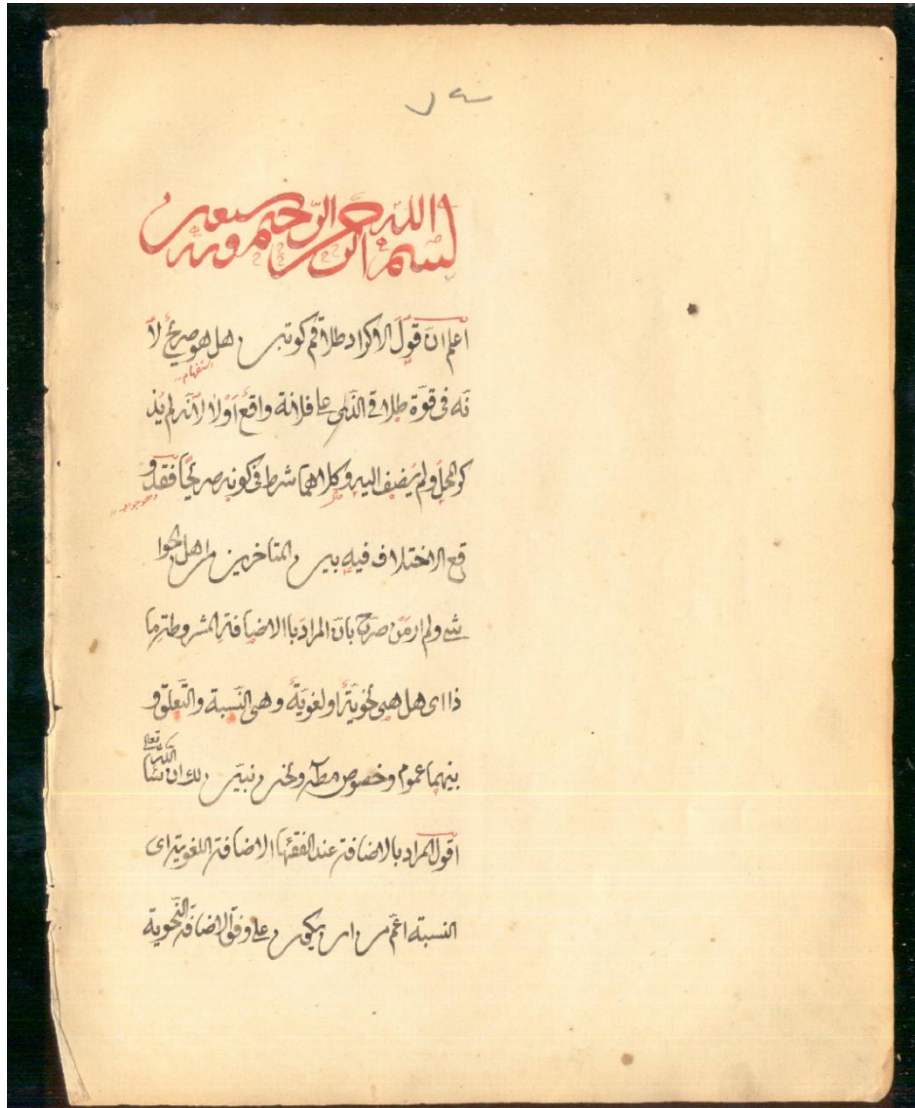 بسم الله الرحمن الرحيم وبه نستعين
اعلم ان قول الاكراد طلاقم كوتبى هل هو صريح لا
استفهام
نه فى قوة طلاقى الذى على فلانة واقع اولا لانه لم يذ
كر المحل ولم يضف اليه وكلاهما شرط فى كونه صريحا فقد و
قع الاختلاف فيه بين المتاخرين من اهل الحوا
شى ولم ار من صرح بان المراد باالاضافة المشروطة ما
ذا اى هل هى نحوية او لغوية وهى النسبة والتعلق و
بينهما عموم وخصوص مطـ ونحن نبين لك ان شاء الله تعالى
اقول المراد بالاضافة عند الفقهاء الاضافة اللغوية اى
النسبة اعم من ان يكون على وفق الاضافة النحوية